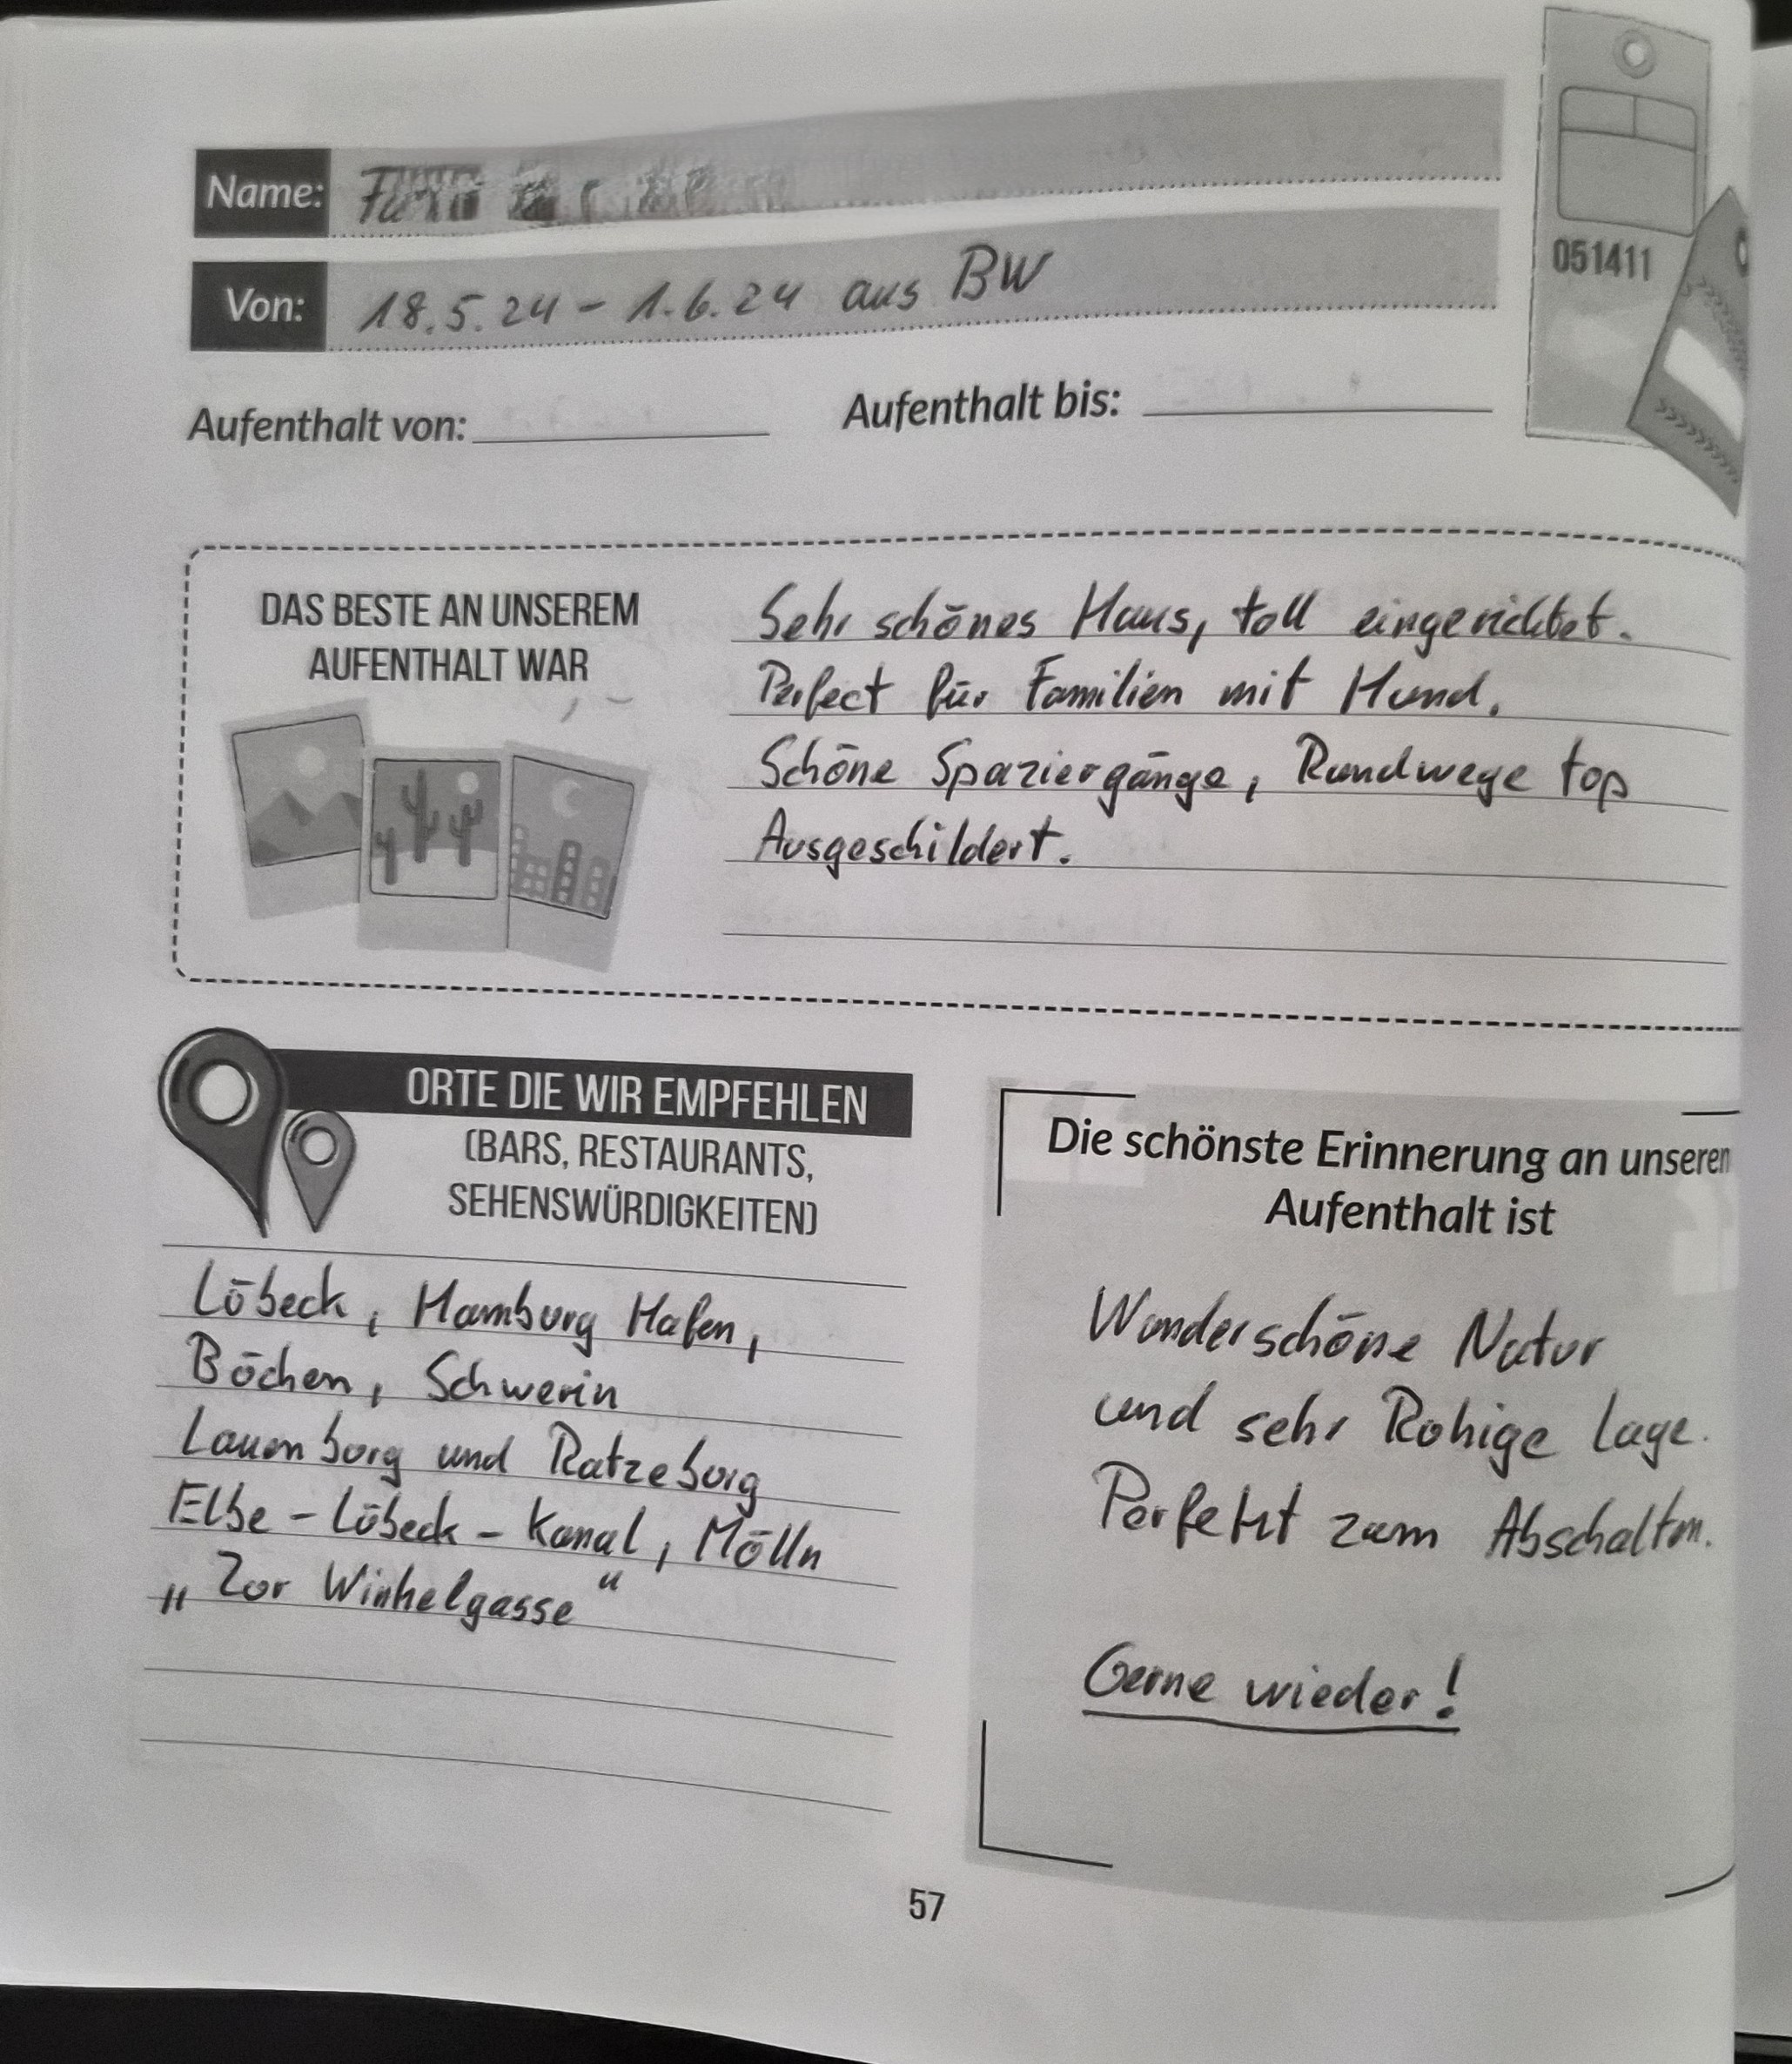 Name:
Von: 18.5.24 - 1.6.24 aus BW
051411
Aufenthalt von: Aufenthalt bis:
DAS BESTE AN UNSEREM
AUFENTHALT WAR
Sehr schönes Haus, toll eingerichtet.
Perfect für Familien mit Hund.
Schöne Spaziergänge, Rundwege top
Ausgeschildert.
ORTE DIE WIR EMPFEHLEN
(BARS, RESTAURANTS,
SEHENSWÜRDIGKEITEN)
Lübeck, Hamburg Hafen,
Büchen, Schwerin
Lauenburg und Ratzeburg
Elbe-Lübeck-Kanal, Mölln
„Zur Winkelgasse“
Die schönste Erinnerung an unseren
Aufenthalt ist
Wunderschöne Natur
und sehr Ruhige Lage.
Perfekt zum Abschalten.
Gerne wieder!
57